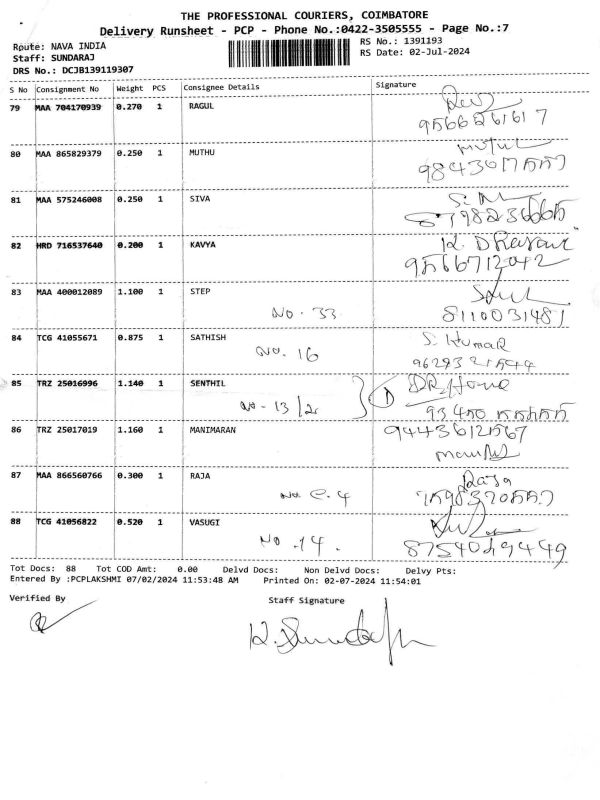 THE PROFESSIONAL COURIERS, COIMBATORE
Delivery Runsheet - PCP - Phone No.:0422-3505555 - Page No.:7
Route: NAVA INDIA
Staff: SUNDARAJ
DRS No.: DCJB139119307
RS No.: 1391193
RS Date: 02-Jul-2024
S No Consignment No Weight PCS Consignee Details Signature
79 MAA 704170939 0.270 1 RAGUL
9566261617
80 MAA 865829379 0.250 1 MUTHU
81 MAA 575246008 0.250 1 SIVA
82 HRD 716537640 0.200 1 KAVYA
9566712042
83 MAA 400012089 1.100 1 STEP
No. 33 8110031481
84 TCG 41055671 0.875 1 SATHISH S. Kumar
No. 16
85 TRZ 25016996 1.140 1 SENTHIL
No - 13/2
86 TRZ 25017019 1.160 1 MANIMARAN 9443612567
87 MAA 866560766 0.300 1 RAJA Raja
No. C. 4
88 TCG 41056822 0.520 1 VASUGI
No. 14.
Tot Docs: 88 Tot COD Amt: 0.00 Delvd Docs: Non Delvd Docs: Delvy Pts:
Entered By :PCPLAKSHMI 07/02/2024 11:53:48 AM Printed On: 02-07-2024 11:54:01
Verified By Staff Signature